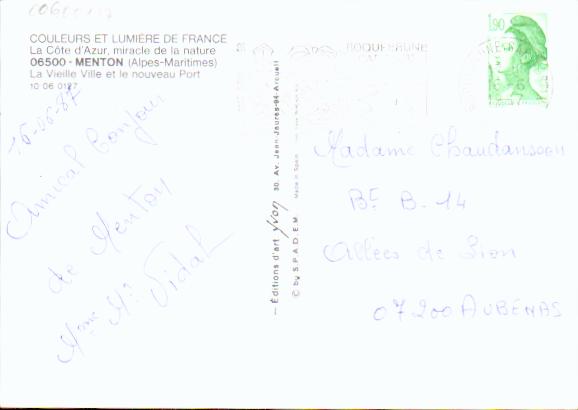 COULEURS ET LUMIÈRE DE FRANCE
La Côte d'Azur, miracle de la nature
06500 - MENTON (Alpes-Maritimes)
La Vieille Ville et le nouveau Port
10 06 0127
16-06-87
Amical bonjour
de Menton
Mme Mr Vidal
— Éditions d'art yvon 30. Av. Jean-Jaurès-94-Arcueil
© by S.P.A.D.E.M. Made in Spain
ROQUEBRUNE
1,90
Madame Chaudanson
Bt B-14
Allées de Sion
07200 AUBENAS